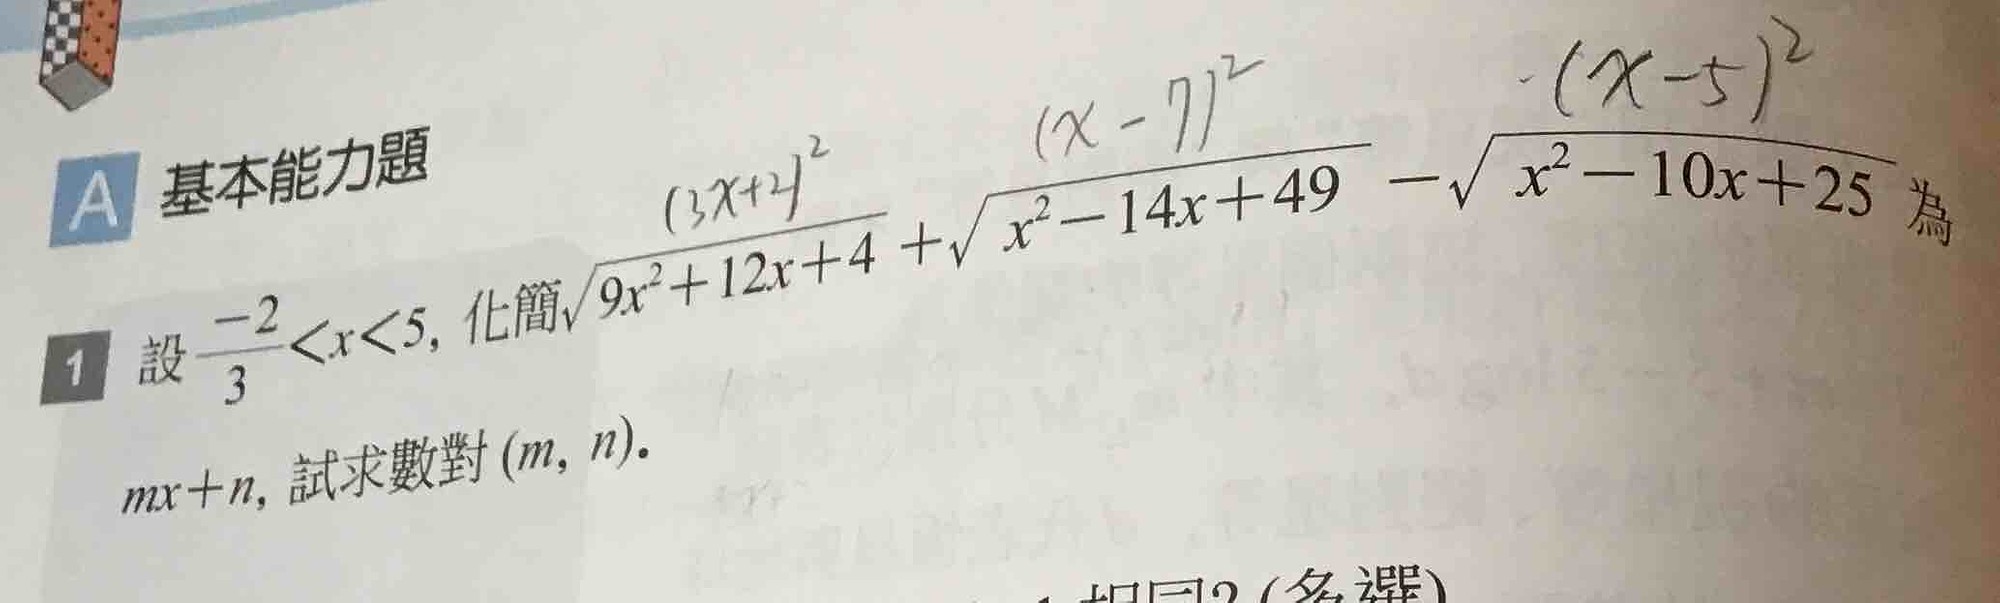 (x-5)²
(x-7)²
(3x+2)²
A 基本能力題
1 設 \frac{-2}{3}<x<5, 化簡√(9x²+12x+4)+√(x²-14x+49)-√(x²-10x+25) 為
mx+n, 試求數對 (m, n).
相同?(多選)